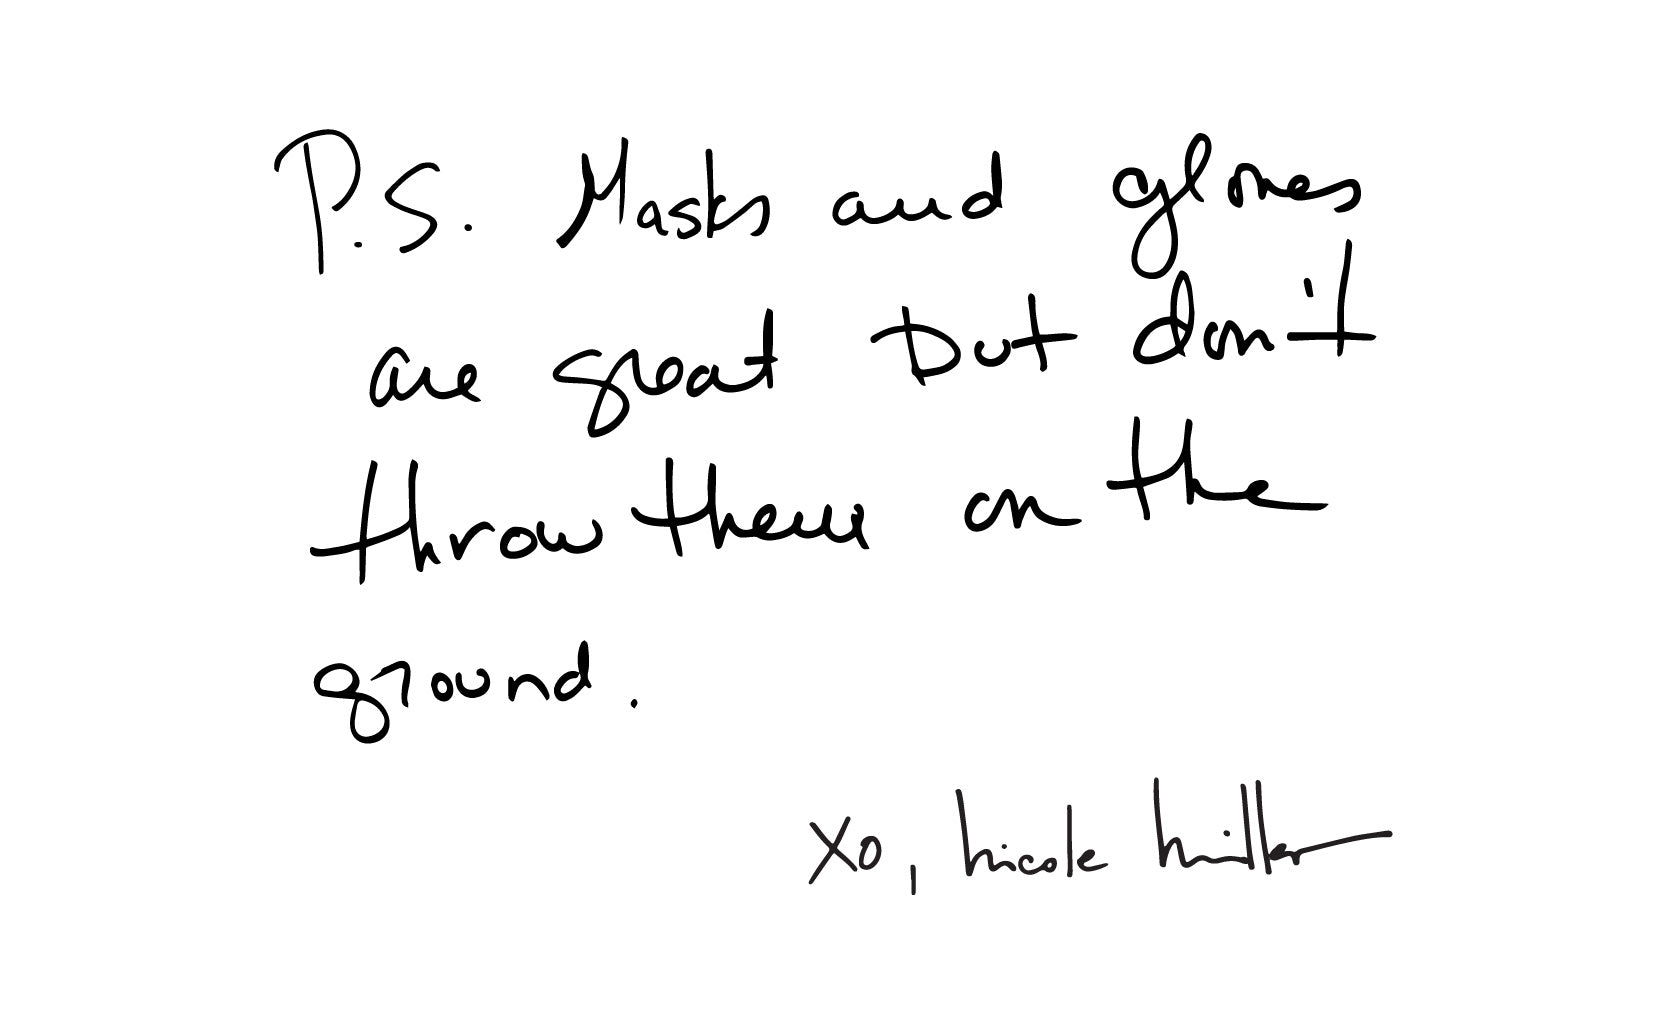 P.S. Masks and gloves
are great but don't
throw them on the
ground.
xo, nicole miller